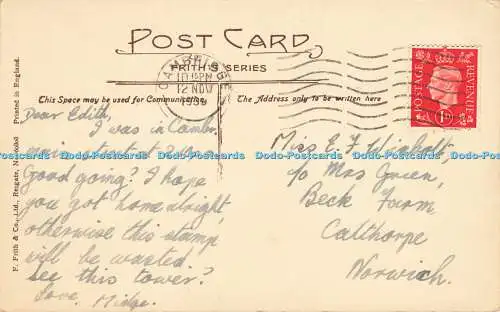 POST CARD
FRITH'S SERIES
CAMBRIDGE
10 PM
12 NOV
1939
POSTAGE
REVENUE
1D
This Space may be used for Communication
The Address only to be written here
Printed in England.
F. Frith & Co., Ltd., Reigate,
Dear Edith,
I was in Camb.
street at 2.
Good going? I hope
you got home alright,
otherwise this stamp
will be wasted.
See this tower?
Love, Midge.
Miss E. F.
c/o Mrs Green,
Beck Farm,
Calthorpe
Norwich.
Dodo-Postcards Dodo-Postcards Dodo-Postcards Dodo-Postcards Dodo-Postcards